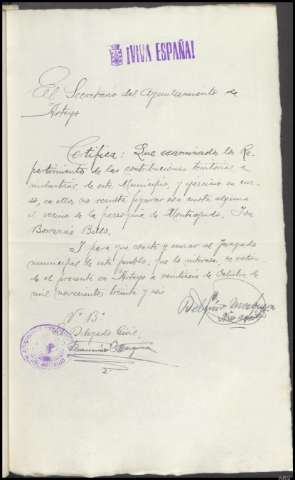 ¡VIVA ESPAÑA!
El Secretario del Ayuntamiento de
Arteyo
Certifica: Que examinados los Re-
partimientos de las contribuciones territorial e
industrial de este Municipio, y ejercicio en cur-
so, en ellos no resulta figurar con cuota alguna
el vecino de la parroquia de Monteagudo, Don
Y para que conste y enviar al Juzgado
municipal de este pueblo, que lo interesa, se extien-
de el presente en Arteyo a veintiseis de Octubre de
mil novecientos treinta y seis
Vº Bº
Delegado Civil,